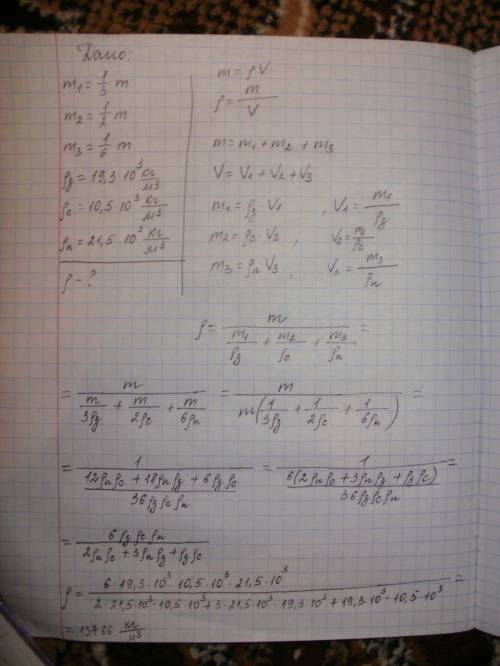 Дано:
m₁ = 1/3 m
m₂ = 1/2 m
m₃ = 1/6 m
ρз = 19,3·10³ кг/м³
ρс = 10,5·10³ кг/м³
ρп = 21,5·10³ кг/м³
ρ - ?
m = ρV
ρ = m/V
m = m₁ + m₂ + m₃
V = V₁ + V₂ + V₃
m₁ = ρз · V₁ , V₁ = m₁/ρз
m₂ = ρс V₂ , V₂ = m₂/ρс
m₃ = ρп V₃ , V₃ = m₃/ρп
ρ = m/(m₁/ρз + m₂/ρс + m₃/ρп) =
= m/(m/3ρз + m/2ρс + m/6ρп) = m/(m(1/3ρз + 1/2ρс + 1/6ρп)) =
= 1/((12ρпρс + 18ρпρз + 6ρзρс)/36ρзρсρп) = 1/(6(2ρпρс + 3ρпρз + ρзρс)/36ρзρсρп) =
= 6ρзρсρп/(2ρпρс + 3ρпρз + ρзρс)
ρ = 6·19,3·10³·10,5·10³·21,5·10³/(2·21,5·10³·10,5·10³ + 3·21,5·10³·19,3·10³ + 19,3·10³·10,5·10³) =
= 13766 кг/м³